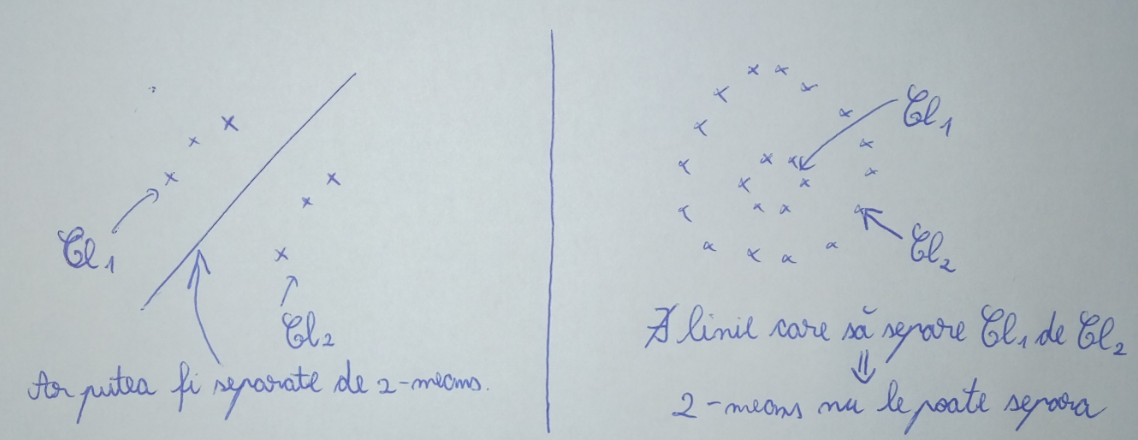 Cl₁
Cl₂
Ar putea fi separate de 2-means.
Cl₁
Cl₂
∄ linie care să separe Cl₁ de Cl₂
⇓
2-means nu le poate separa